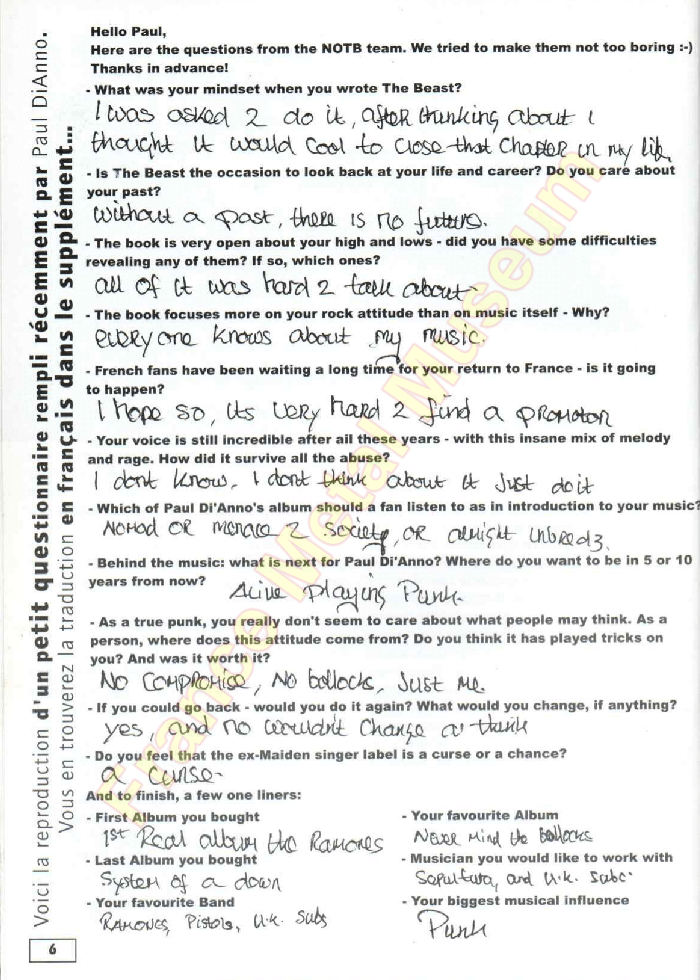 Voici la reproduction d'un petit questionnaire rempli récemment par Paul DiAnno.
Vous en trouverez la traduction en français dans le supplément...
Hello Paul,
Here are the questions from the NOTB team. We tried to make them not too boring :-)
Thanks in advance!
- What was your mindset when you wrote The Beast?
I was asked 2 do it, after thinking about i
thought it would cool to close that chapter in my life
- Is The Beast the occasion to look back at your life and career? Do you care about
your past?
Without a past, there is no future.
- The book is very open about your high and lows - did you have some difficulties
revealing any of them? If so, which ones?
all of it was hard 2 talk about
- The book focuses more on your rock attitude than on music itself - Why?
everyone knows about my music.
- French fans have been waiting a long time for your return to France - is it going
to happen?
I hope so, its very hard 2 find a promotor
- Your voice is still incredible after all these years - with this insane mix of melody
and rage. How did it survive all the abuse?
I dont know, I dont think about it just do it
- Which of Paul Di'Anno's album should a fan listen to as in introduction to your music?
Nomad OR menace 2 society, OR alright
- Behind the music: what is next for Paul Di'Anno? Where do you want to be in 5 or 10
years from now?
Alive playing Punk.
- As a true punk, you really don't seem to care about what people may think. As a
person, where does this attitude come from? Do you think it has played tricks on
you? And was it worth it?
NO COMPROMISE, NO bollocks, Just me.
- If you could go back - would you do it again? What would you change, if anything?
yes, and no wouldn't change a
- Do you feel that the ex-Maiden singer label is a curse or a chance?
a curse
And to finish, a few one liners:
- First Album you bought
1st Real album the Ramones
- Last Album you bought
System of a down
- Your favourite Band
RAMONES, Pistols, U.K. Subs
- Your favourite Album
Never Mind the bollocks
- Musician you would like to work with
Sepultura, and U.K. Subs
- Your biggest musical influence
Punk
6
France Metal Museum